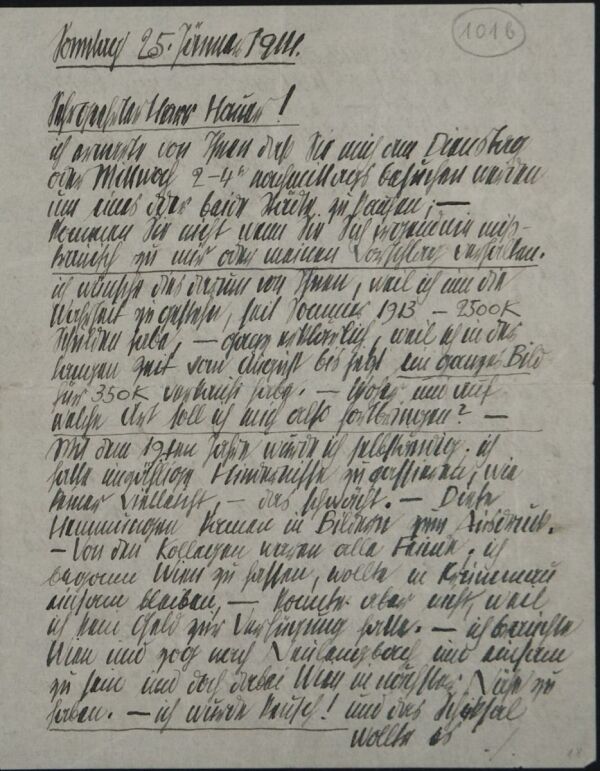 1016
Sonntag 25. Jänner 1914.
Sehr geehrter Herr Hauer!
ich erwarte von Ihnen daß Sie mich am Dienstag
oder Mittwoch 2–4h nachmittags besuchen werden
um eines oder beide Städte zu kaufen; —
kommen Sie nicht wenn Sie Sich irgendwie miß-
trauisch zu mir oder meinen Vorschlag verhalten.
ich wünsche dies darum von Ihnen, weil ich um die
Wahrheit zu gestehen, seit Sommer 1913 – 2500 K
Schulden habe, – ganz erklärlich, weil ich in der
langen Zeit vom August bis jetzt ein ganzes Bild
für 350 K verkauft habe. – Woher und auf
welche Art soll ich mich also fortbringen? –
Mit dem 19ten Jahre wurde ich selbständig, ich
hatte unzählige Hindernisse zu passieren, wie
keiner vielleicht, – das schwächt. – Diese
Hemmungen kamen in Bildern zum Ausdruck.
– Von den Kollegen waren alle Feinde. ich
begann Wien zu hassen, wollte in Krummau
einsam bleiben, – konnte aber nicht, weil
ich kein Geld zur Verfügung hatte. – ich brauchte
Wien und zog nach Neulengbach um einsam
zu sein und doch dabei Wien in nächster Nähe zu
haben. – ich wurde keusch! und das Schicksal
wollte es